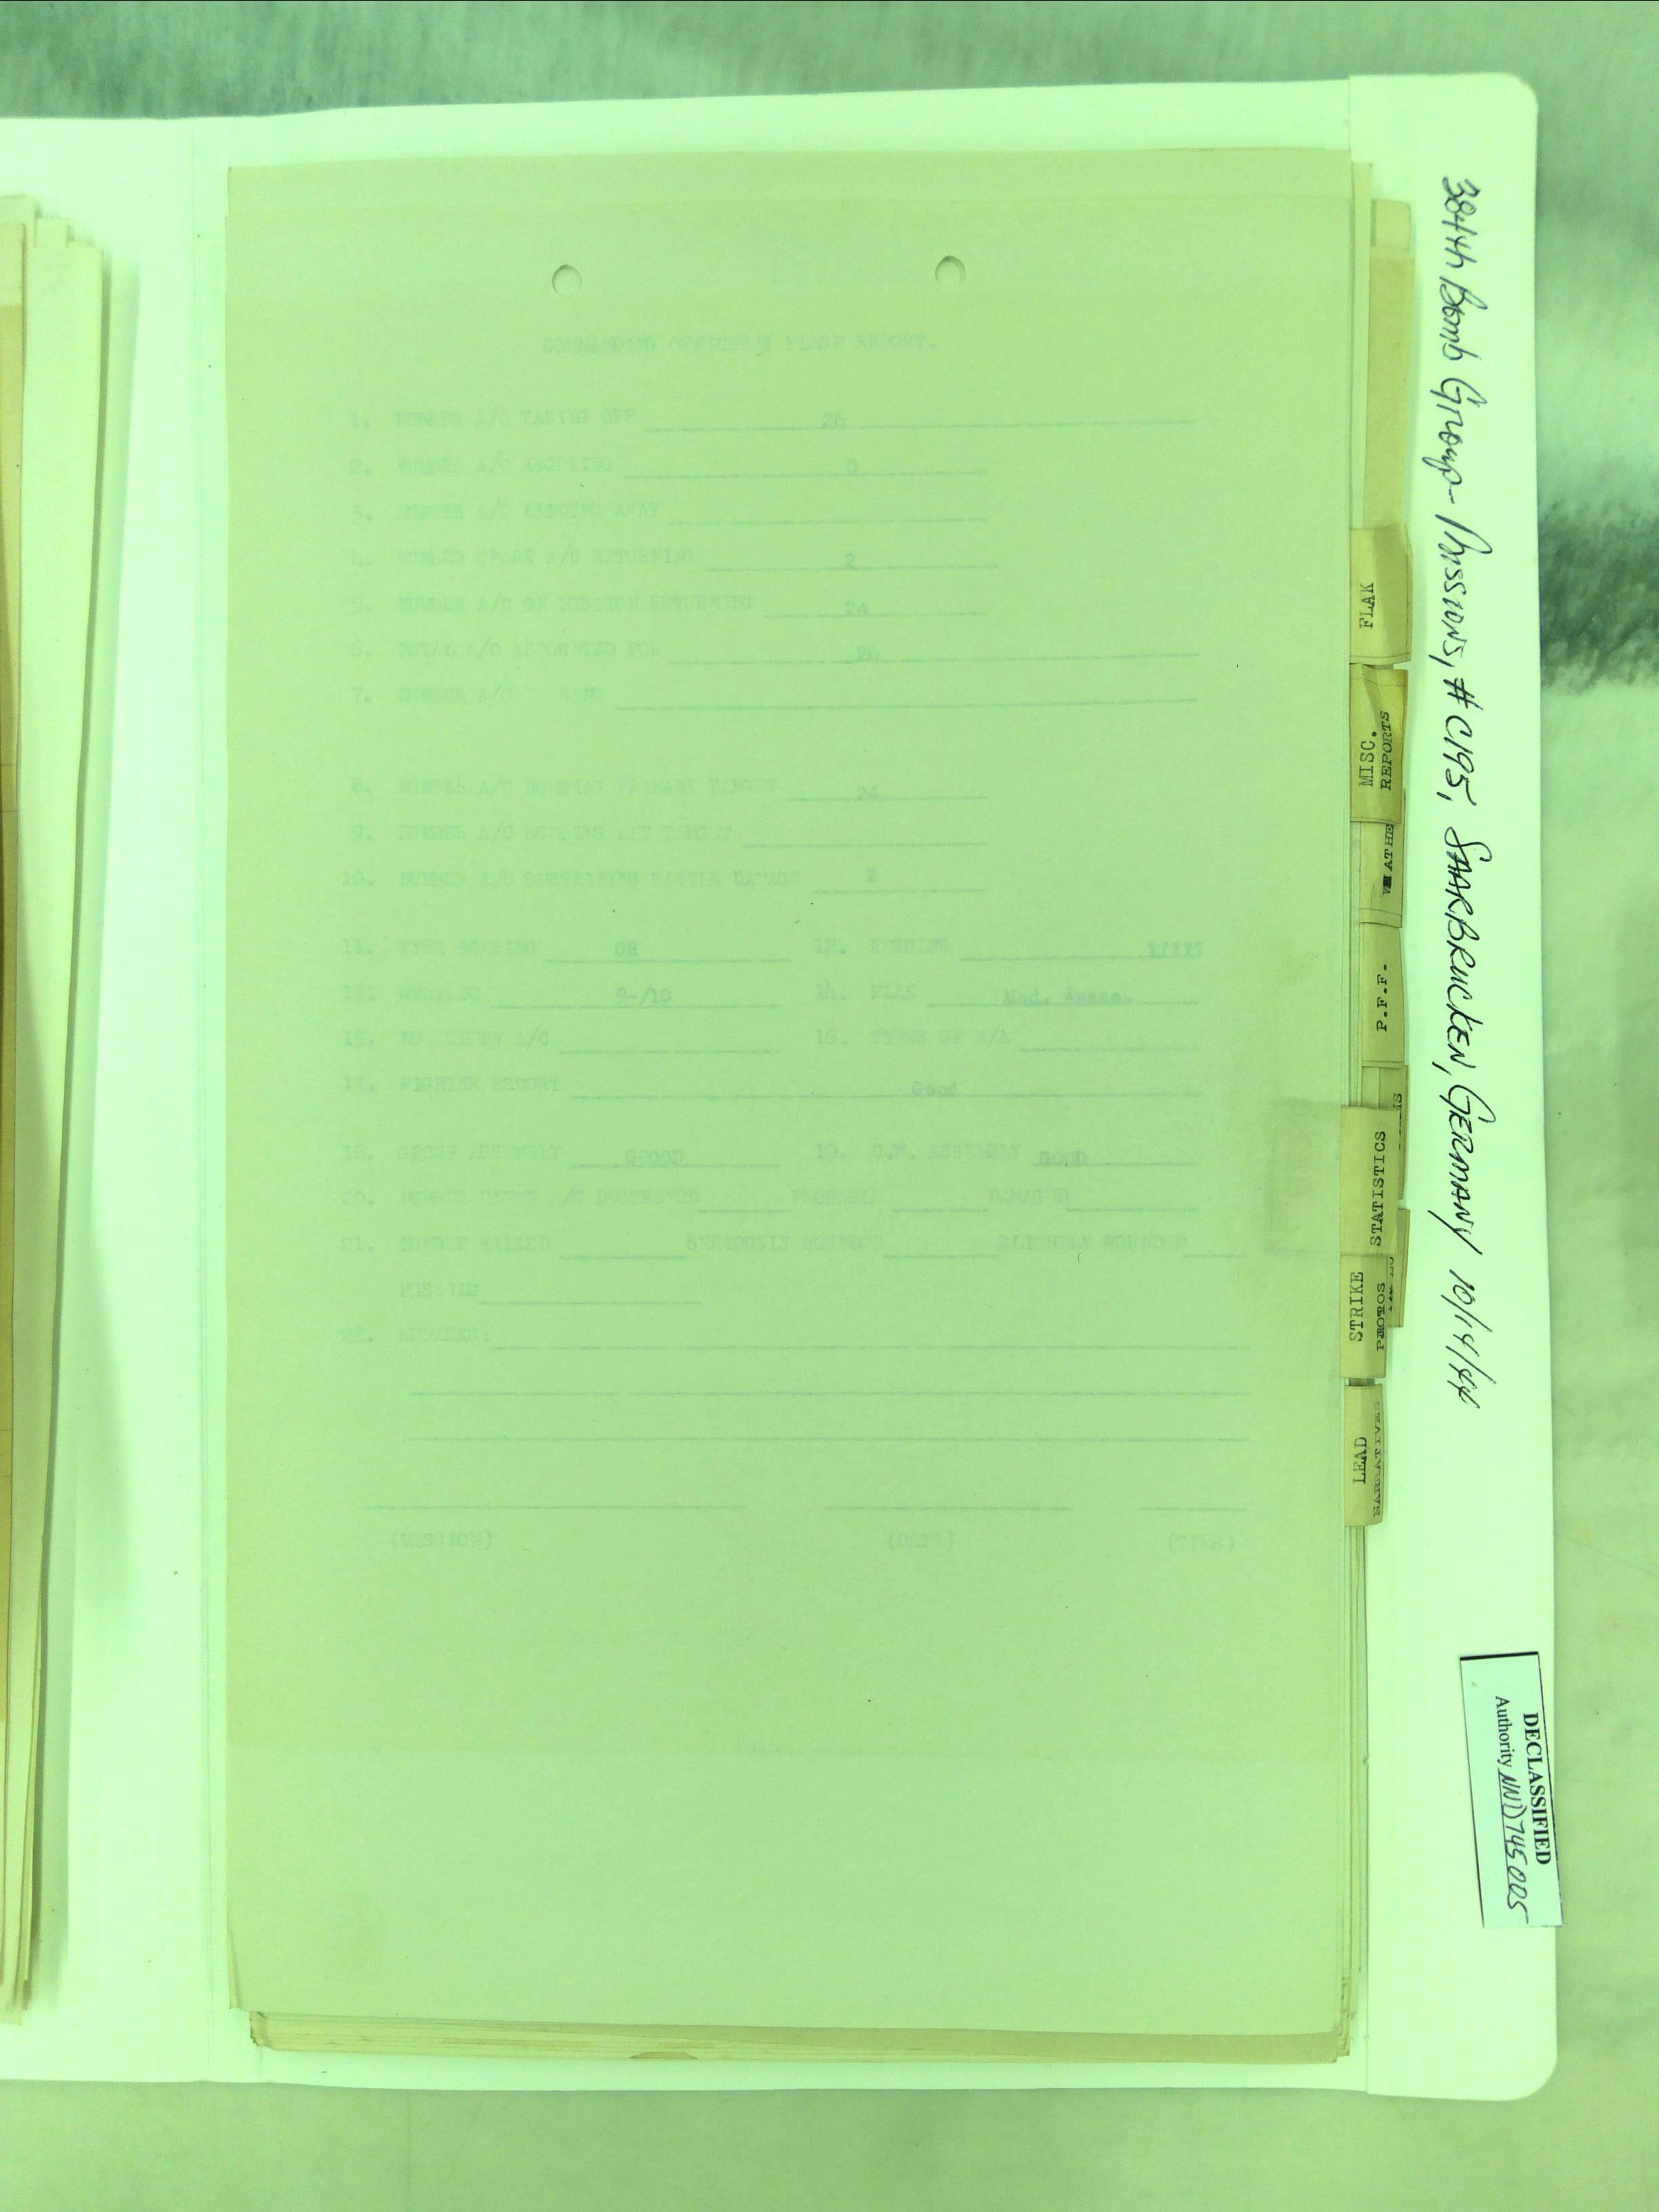 COMMANDING OFFICER'S FLASH REPORT.
1. NUMBER A/C TAKING OFF 26
2. NUMBER A/C ABORTING 0
3. NUMBER A/C LANDING AWAY
4. NUMBER SPARE A/C RETURNING 2
5. NUMBER A/C ON MISSION RETURNING 24
6. TOTAL A/C ACCOUNTED FOR 26
7. NUMBER A/C
8. NUMBER A/C BOMBING PRIMARY TARGET 24
9. NUMBER A/C BOMBING TARGET
10. NUMBER A/C SUSTAINING BATTLE DAMAGE 2
11. TYPE BOMBING GH 12. RESULTS
13. WEATHER 9-/10 14. FLAK Med.
15. NO. ENEMY A/C 16. TYPES OF E/A
17. FIGHTER ESCORT Good
18. GROUP ASSEMBLY GOOOD 19. C.W. ASSEMBLY GOOD
20. NUMBER ENEMY A/C DESTROYED PROBABLE DAMAGED
21. NUMBER KILLED SERIOUSLY WOUNDED SLIGHTLY WOUNDED
MISSING
22. REMARKS:
(MISSION) (DATE) (TIME)
FLAK
MISC. REPORTS
P.F.F.
STATISTICS
STRIKE PHOTOS
LEAD NARRATIVES
384th Bomb Group- Missions, #C195, SAARBRUCKEN, GERMANY 10/14/44
DECLASSIFIED
Authority NND745005